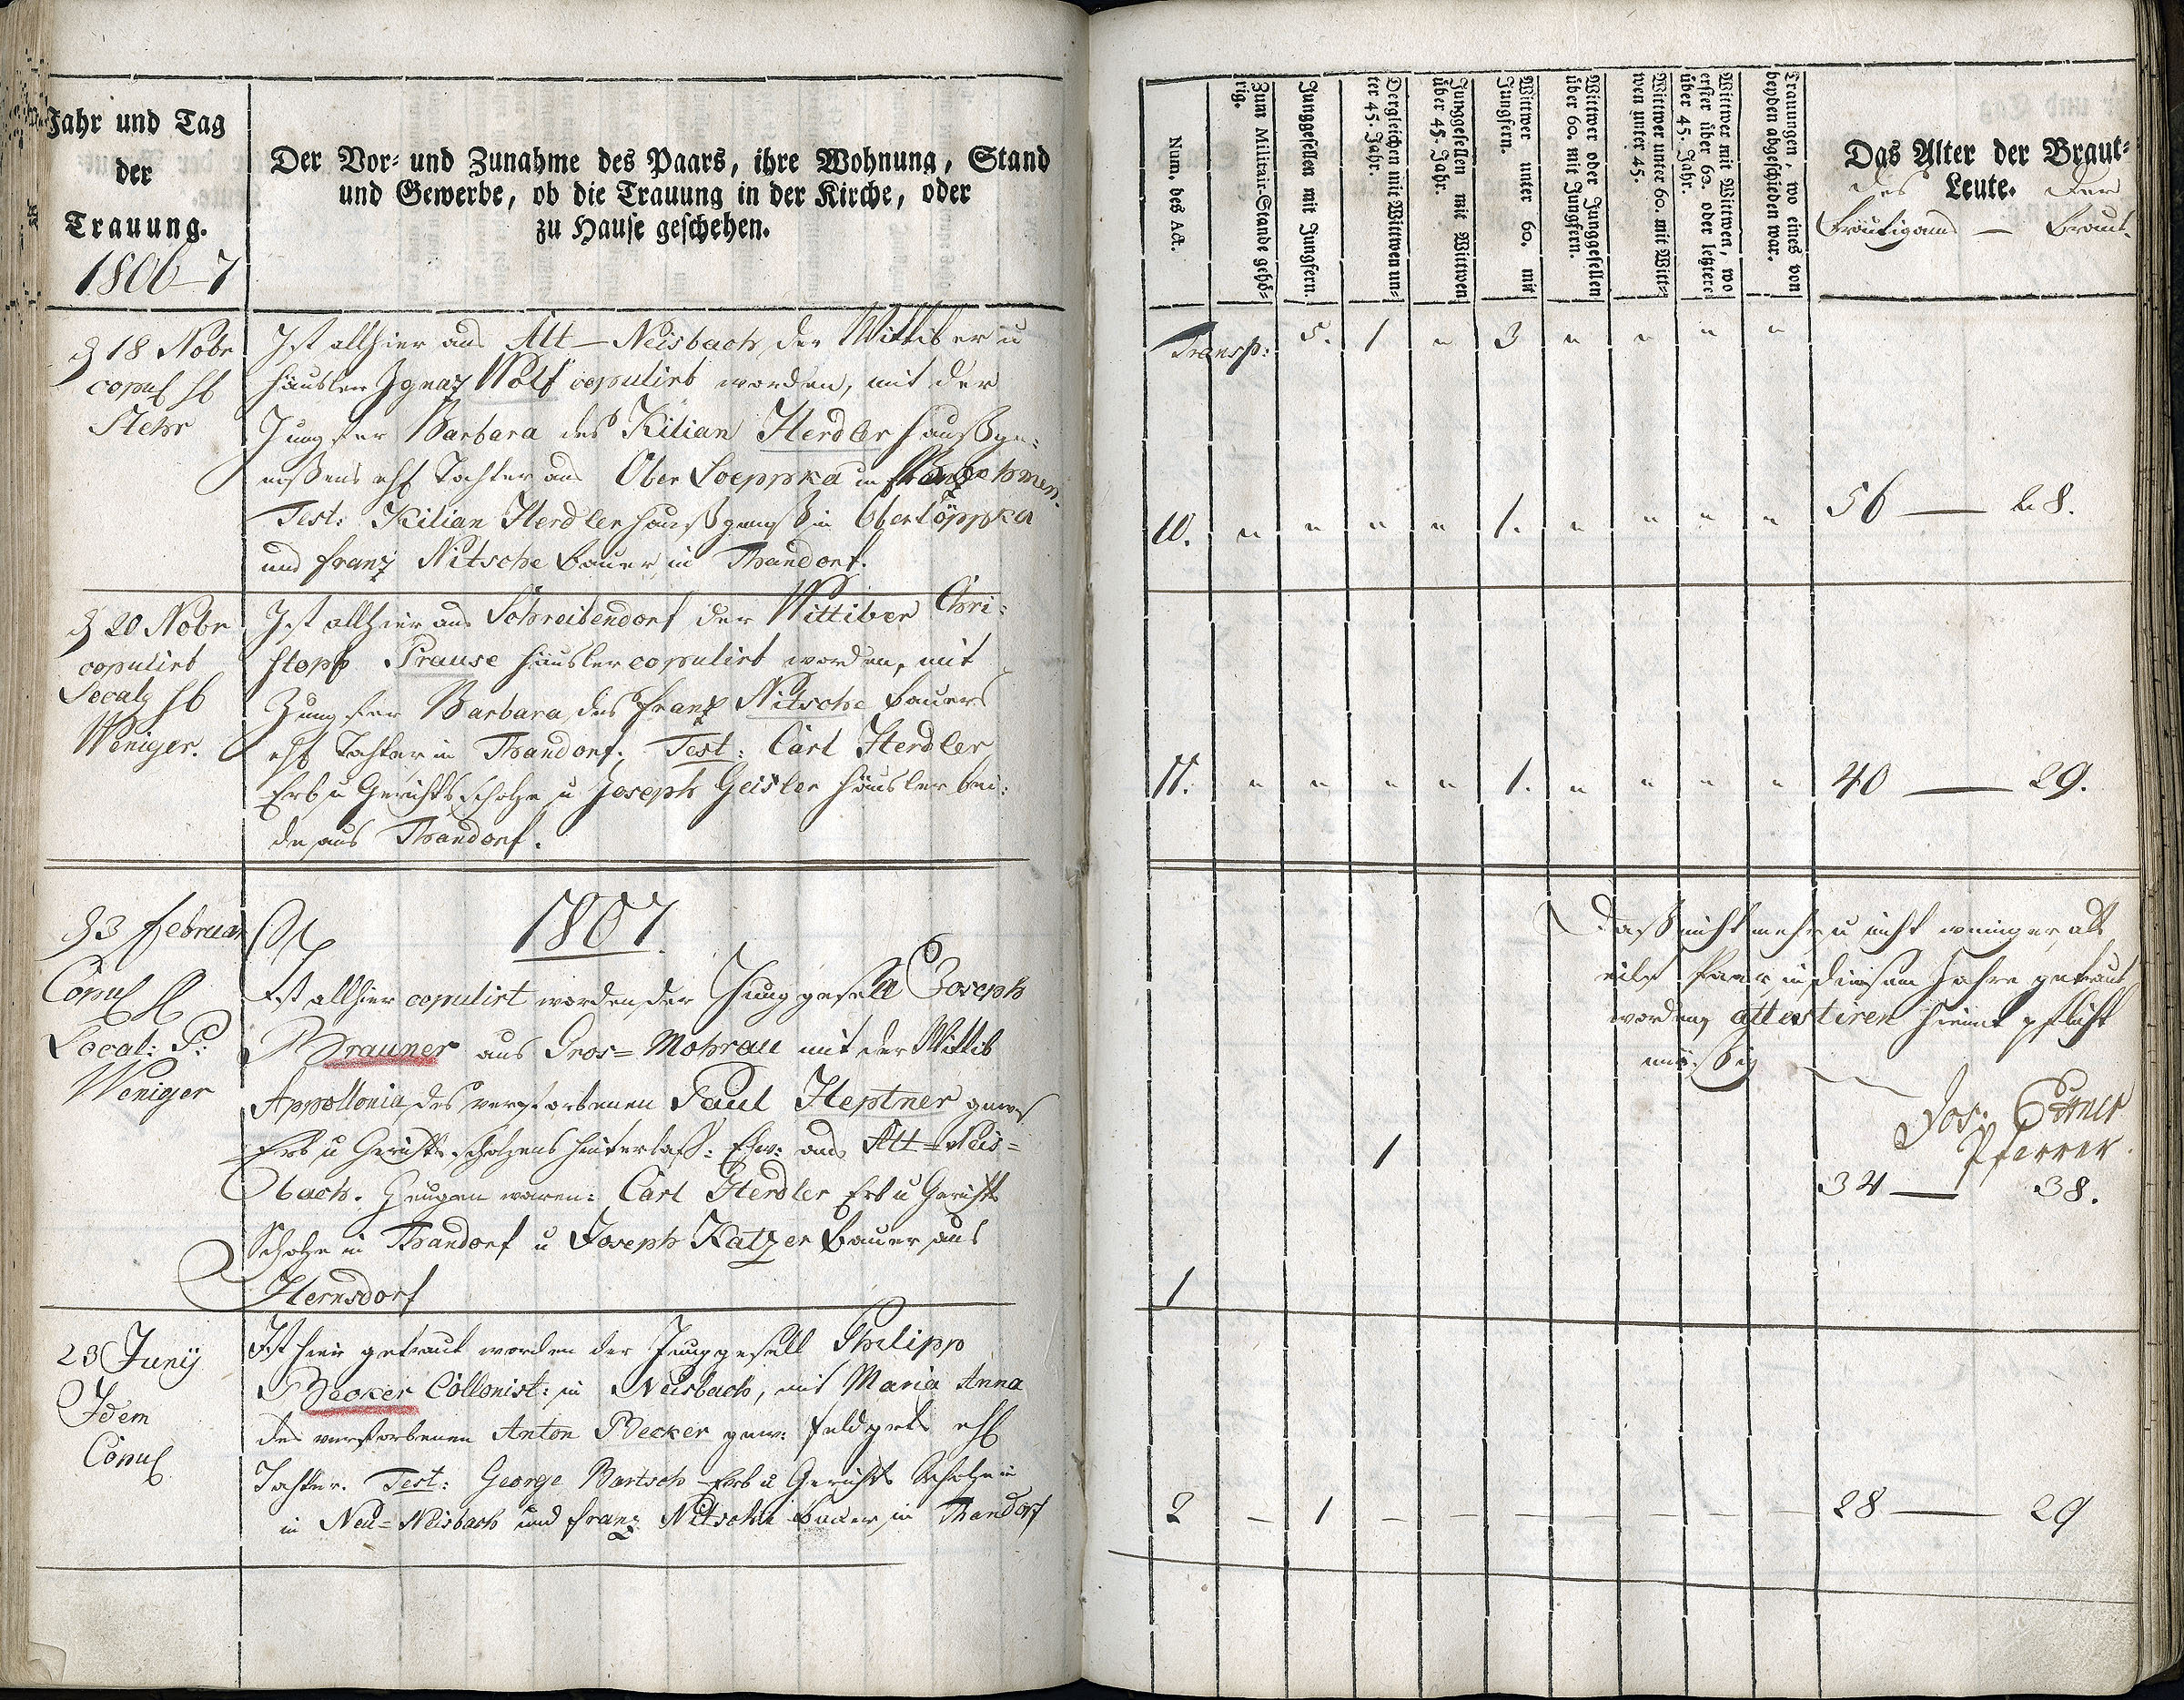 Jahr und Tag
der
Trauung.
1806-7
Der Vor- und Zunahme des Paars, ihre Wohnung, Stand
und Gewerbe, ob die Trauung in der Kirche, oder
zu Hause geschehen.
18 Nobr
copul
Stehr
Ist allhier aus Alt-Neisbach der Wittiber u
Häusler Ignaz Wolf copulirt worden, mit der
Jungfer Barbara des Kilian Herdler Haußge-
noßens ehl Tochter aus Ober Loeppka in Boehmen.
Test: Kilian Herdler Haußgenoß in Ober Löppka
und Franz Nitsche Bauer in Thandorf.
20 Nobr
copulirt
Weniger.
Ist allhier aus Schreibendorf der Wittiber Chri-
stoph Prause Häusler copulirt worden, mit
Jungfer Barbara, des Franz Nitsche Bauers
ehl Tochter in Thandorf. Test: Carl Herdler
Erb u Gerichts Scholze u Joseph Geisler Häusler bei-
de aus Thandorf.
1807.
3 Februar
Copul
Local: P:
Weniger
Ist allhier copulirt worden der Junggesell Joseph
Brauner aus Gros=Mohrau mit der Wittib
Appollonia, des verstorbenen Paul Heptner gewes
Erb u Gerichts Scholzens hinterlaß: Ehw: aus Alt=Neis=
bach. Zeugen waren: Carl Herdler Erb u Gerichts
Scholze in Thandorf u Joseph Katzer Bauer aus
Hernsdorf
23 Junÿ
Idem
Copul
Ist hier getraut worden der Junggesell Philipp
Becker Collonist: in Neisbach, mit Maria Anna
des verstorbenen Anton Becker gew: ehl
Tochter. Test: George Bartsch Erb u Gerichts Scholze
in Neu=Neisbach und Franz Nitsche Bauer in Thandorf
Num. des Act.
Zum Militair-Stande gehö-
rig.
Junggesellen mit Jungfern.
Dergleichen mit Wittwen un-
ter 45. Jahr.
Junggesellen mit Wittwen
über 45. Jahr.
Wittwer unter 60. mit
Jungfern.
Wittwer oder Junggesellen
über 60. mit Jungfern.
Wittwer unter 60. mit Witt-
wen unter 45.
Wittwer mit Wittwen, wo
erster über 60. oder letztere
über 45. Jahr.
Trauungen, wo eines von
beyden abgeschieden war.
Das Alter der Braut-
Leute.
des der
Bräutigams — Braut.
Transp: 5. 1 " 3 " " " "
10. " " " " 1. " " " " 56 — 28.
11. " " " " 1. " " " " 40 — 29.
Daß nicht mehr u nicht weniger als
eilf Paar in diesem Jahre getraut
worden, attestiren hiemit pflicht
mäßig
Jos:
Pfarrer.
1
34 — 38.
1
2 — 1 — — — — — — — 28 — 29